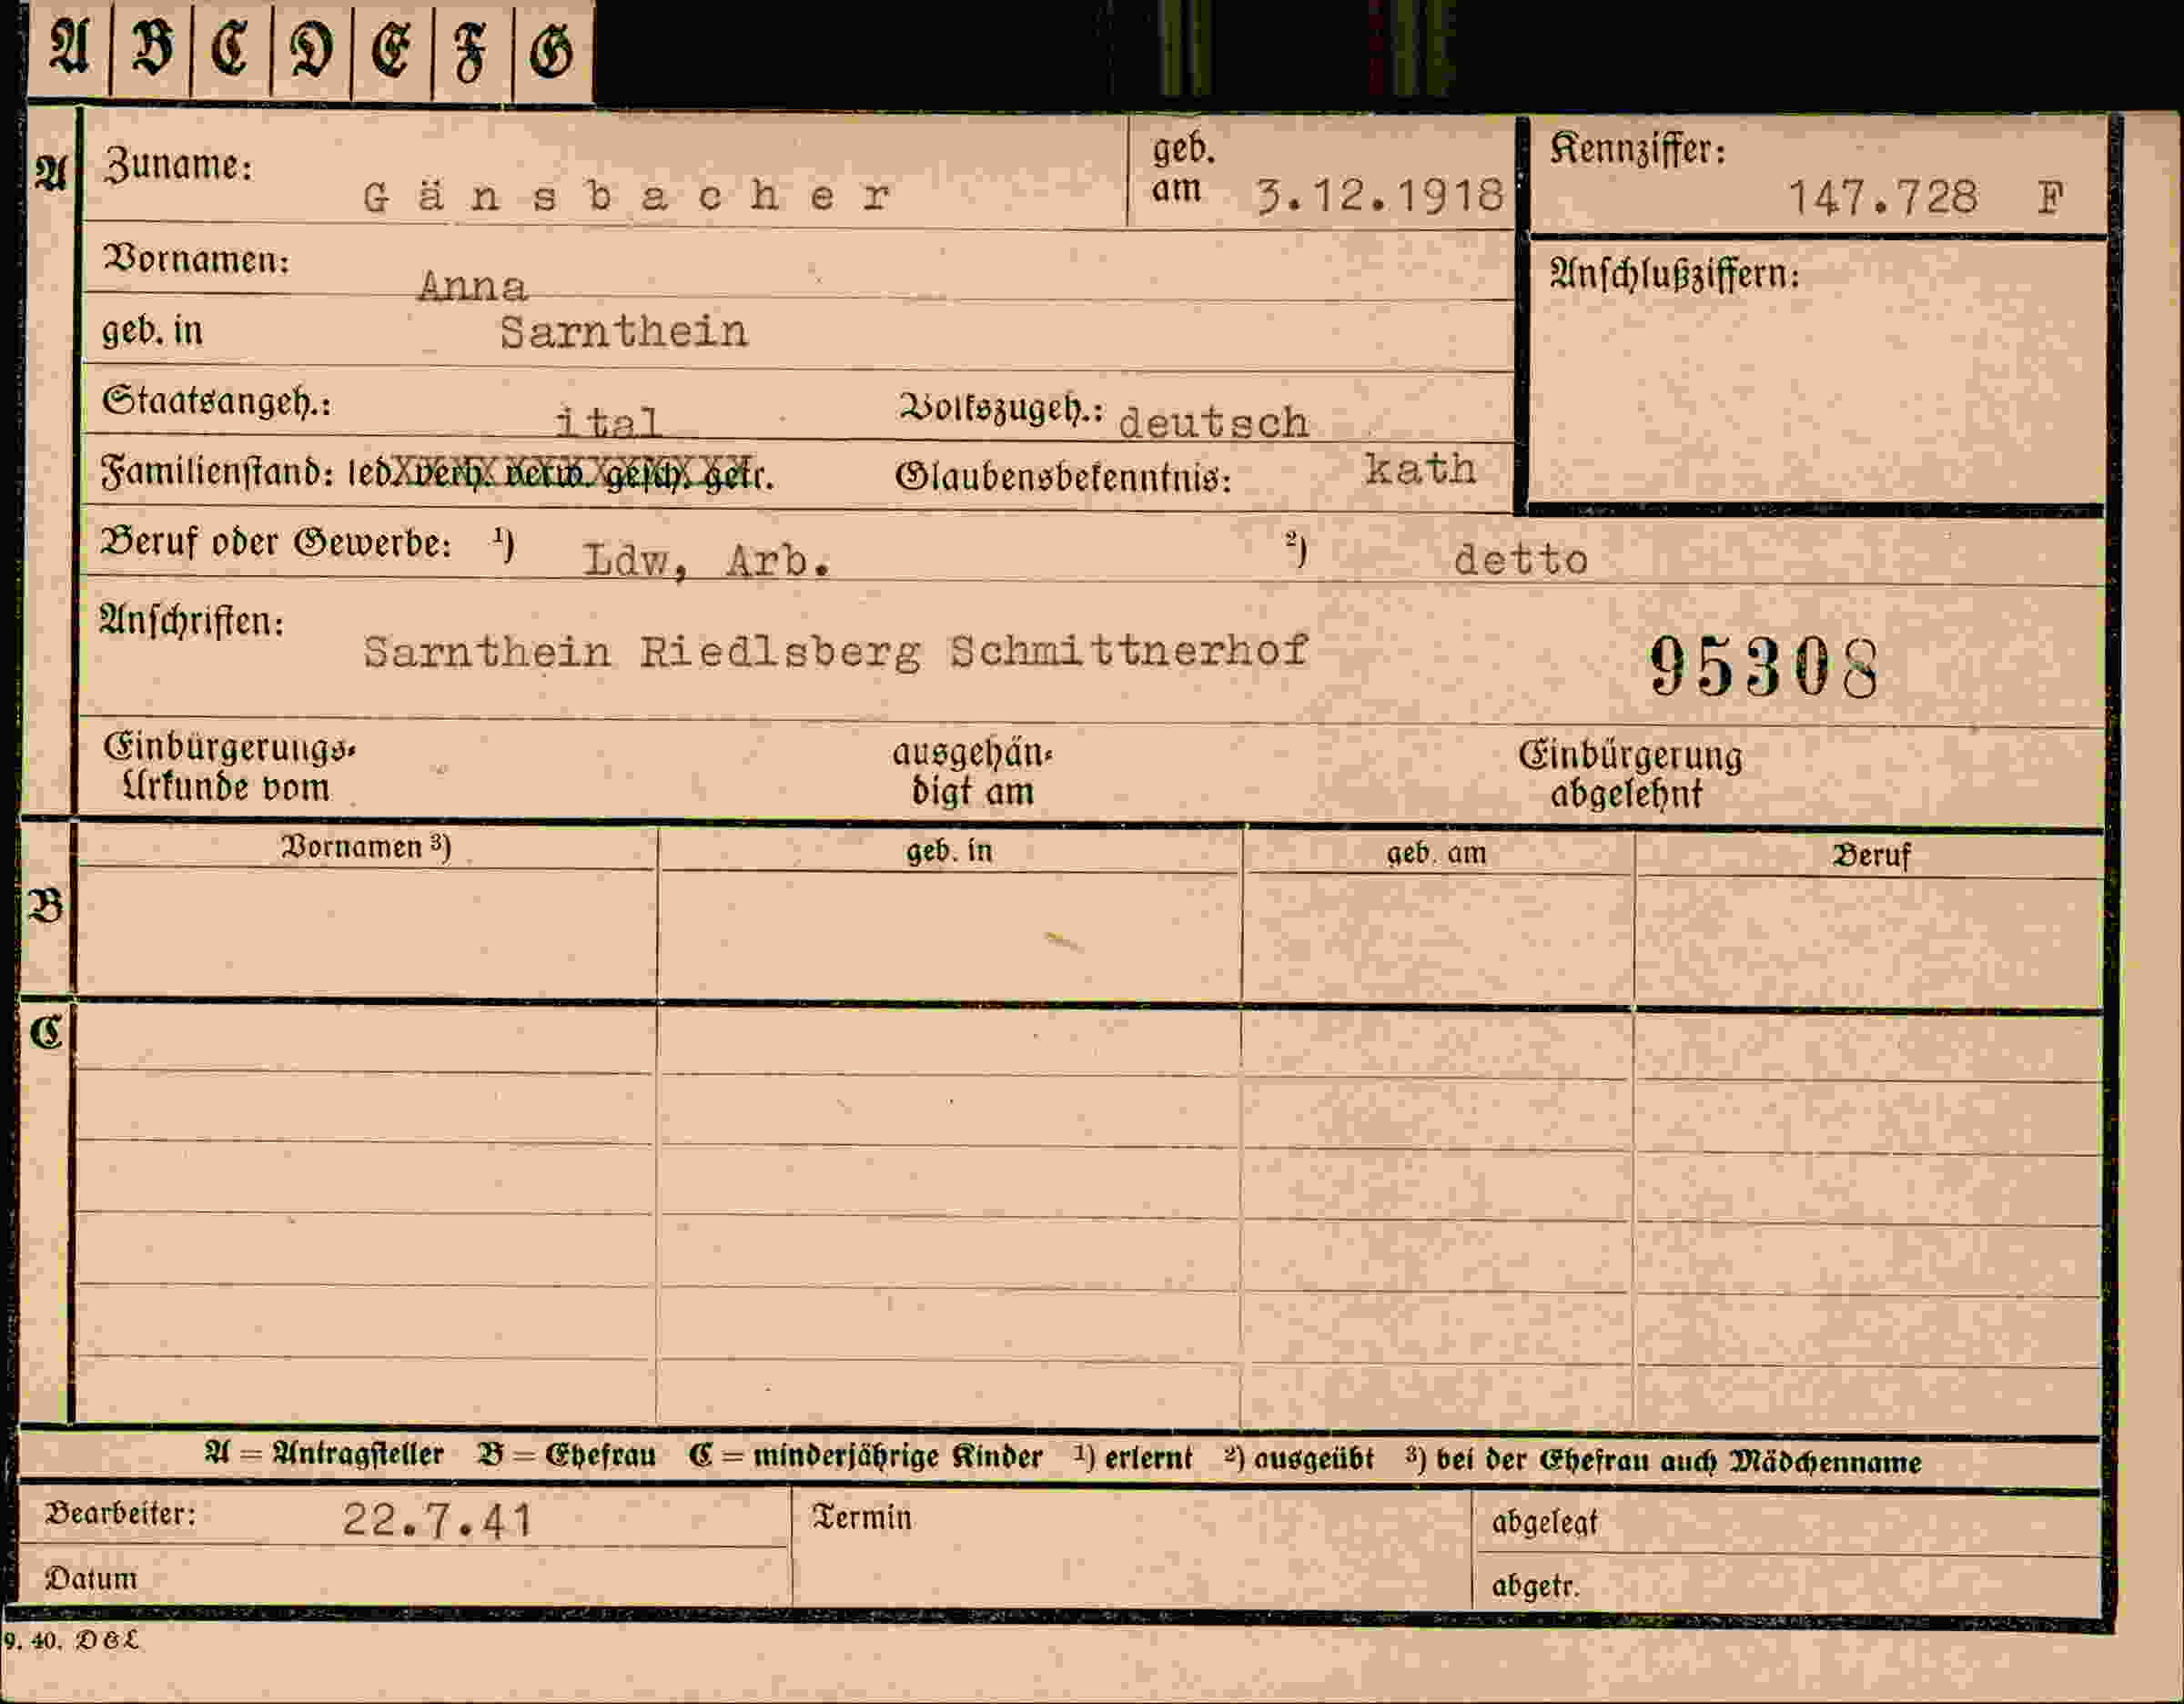 A B C D E F G
A Zuname: Gänsbacher geb. am 3.12.1918 Kennziffer: 147.728 F
Vornamen: Anna Anschlußziffern:
geb. in Sarnthein
Staatsangeh.: ital Volkszugeh.: deutsch
Familienstand: led. verh. verw. gesch. getr. Glaubensbekenntnis: kath
Beruf oder Gewerbe: 1) Ldw, Arb. 2) detto
Anschriften: Sarnthein Riedlsberg Schmittnerhof 95308
Einbürgerungs- ausgehän- Einbürgerung
Urkunde vom digt am abgelehnt
Vornamen 3) geb. in geb. am Beruf
B
C
A = Antragsteller B = Ehefrau C = minderjährige Kinder 1) erlernt 2) ausgeübt 3) bei der Ehefrau auch Mädchenname
Bearbeiter: 22.7.41 Termin abgelegt
Datum abgetr.
9. 40. D&L